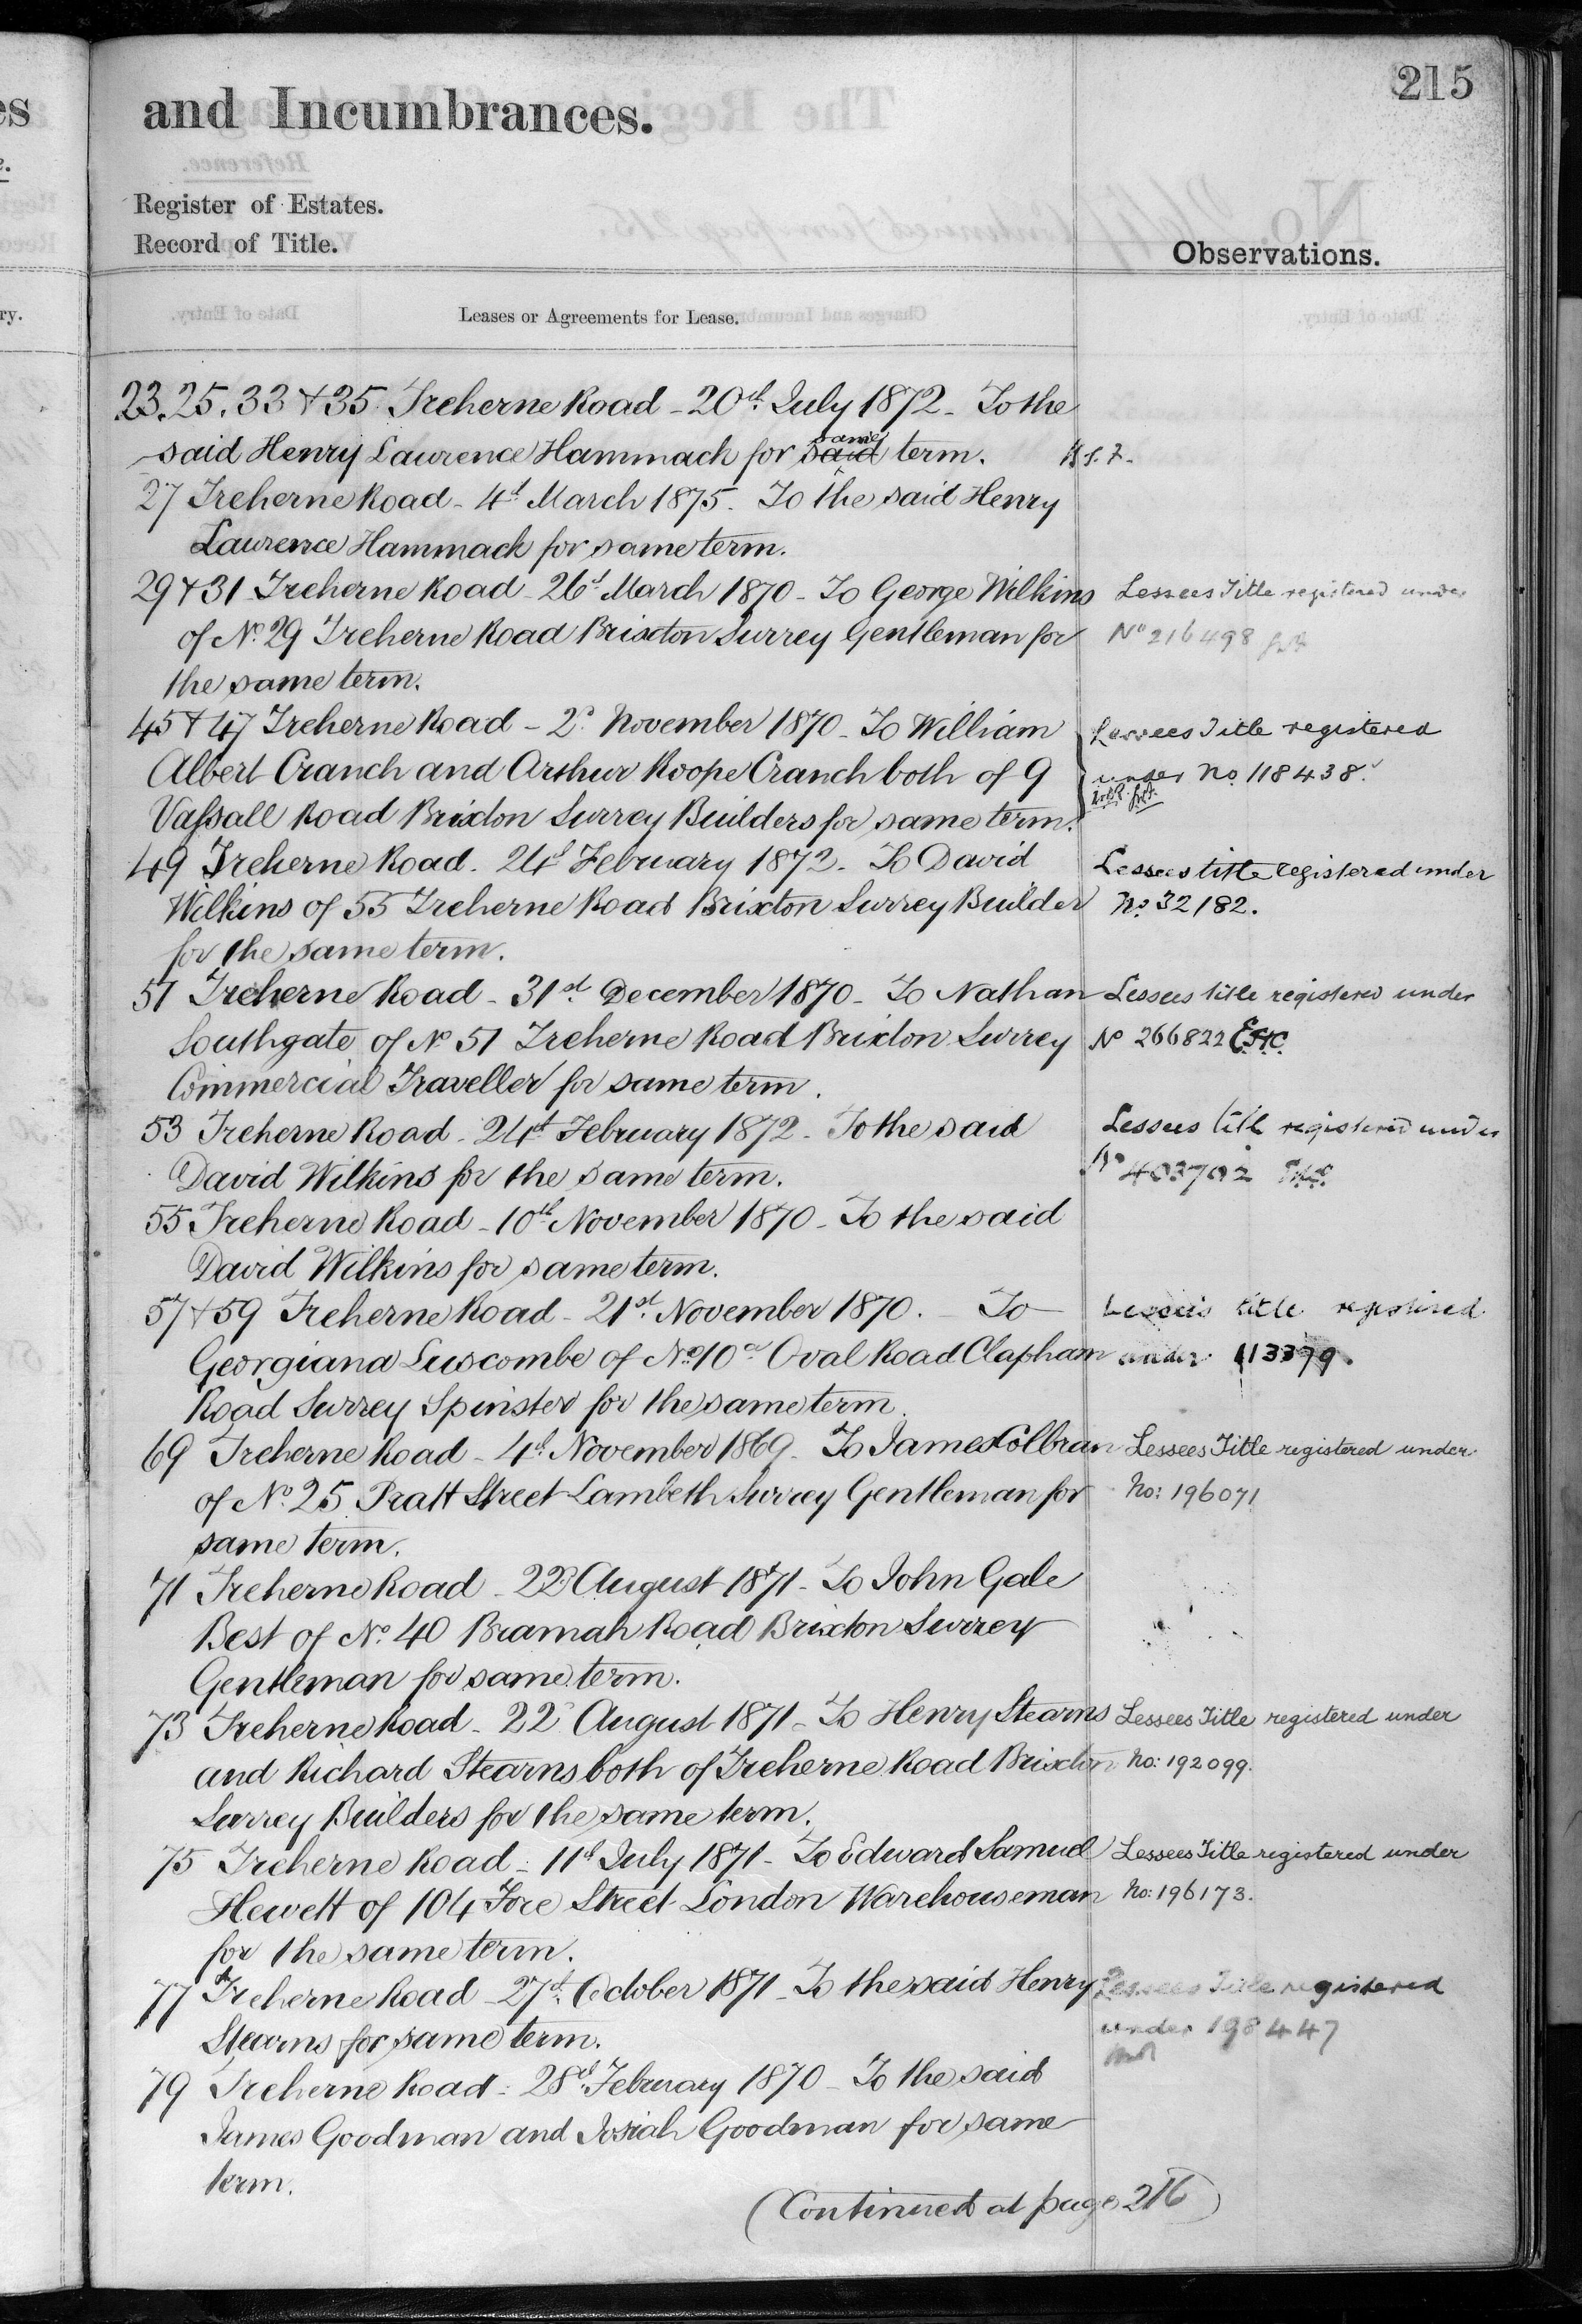 215
and Incumbrances.
Register of Estates.
Record of Title.
Observations.
Leases or Agreements for Lease.
23, 25, 33 & 35 Treherne Road - 20th July 1872 - To the
said Henry Laurence Hammack for said same term.
27 Treherne Road - 4th March 1875 - To the said Henry
Laurence Hammack for same term.
29 & 31 Treherne Road - 26th March 1870 - To George Wilkins
Lessees Title registered under
of No. 29 Treherne Road Brixton Surrey Gentleman for
No 216498
the same term.
45 & 47 Treherne Road - 2d November 1870 - To William
Lessees Title registered
Albert Cranch and Arthur Roope Cranch both of 9
under No. 118438.
Vassall Road Brixton Surrey Builders for same term.
49 Treherne Road. 24th February 1872 - To David
Lessees title registered under
Wilkins of 55 Treherne Road Brixton Surrey Builder
No. 32182.
for the same term.
51 Treherne Road - 31st December 1870 - To Nathan
Lessees title registered under
Southgate of No 51 Treherne Road Brixton Surrey
No 266822
Commercial Traveller for same term.
53 Treherne Road - 24th February 1872 - To the said
Lessees title registered under
David Wilkins for the same term.
No 403702
55 Treherne Road - 10th November 1870 - To the said
David Wilkins for same term.
57 & 59 Treherne Road - 21st November 1870. - To
Lessee's title registered
Georgiana Luscombe of No. 10a Oval Road Clapham
under 113379.
Road Surrey Spinster for the same term.
69 Treherne Road - 4th November 1869 - To James Colbran
Lessees Title registered under
of No. 25 Pratt Street Lambeth Surrey Gentleman for
No: 196071
same term.
71 Treherne Road - 22d August 1871 - To John Gale
Best of No. 40 Bramah Road Brixton Surrey
Gentleman for same term.
73 Treherne Road - 22d August 1871 - To Henry Stearns
Lessees Title registered under
and Richard Stearns both of Treherne Road Brixton
No: 192099.
Surrey Builders for the same term.
75 Treherne Road - 11th July 1871 - To Edward Samuel
Lessees Title registered under
Hewett of 104 Fore Street London Warehouseman
No: 196173.
for the same term.
77 Treherne Road - 27th October 1871 - To the said Henry
Lessees Title registered
Stearns for same term.
under 198447
79 Treherne Road - 28th February 1870 - To the said
James Goodman and Josiah Goodman for same
term.
(Continued at page 216)